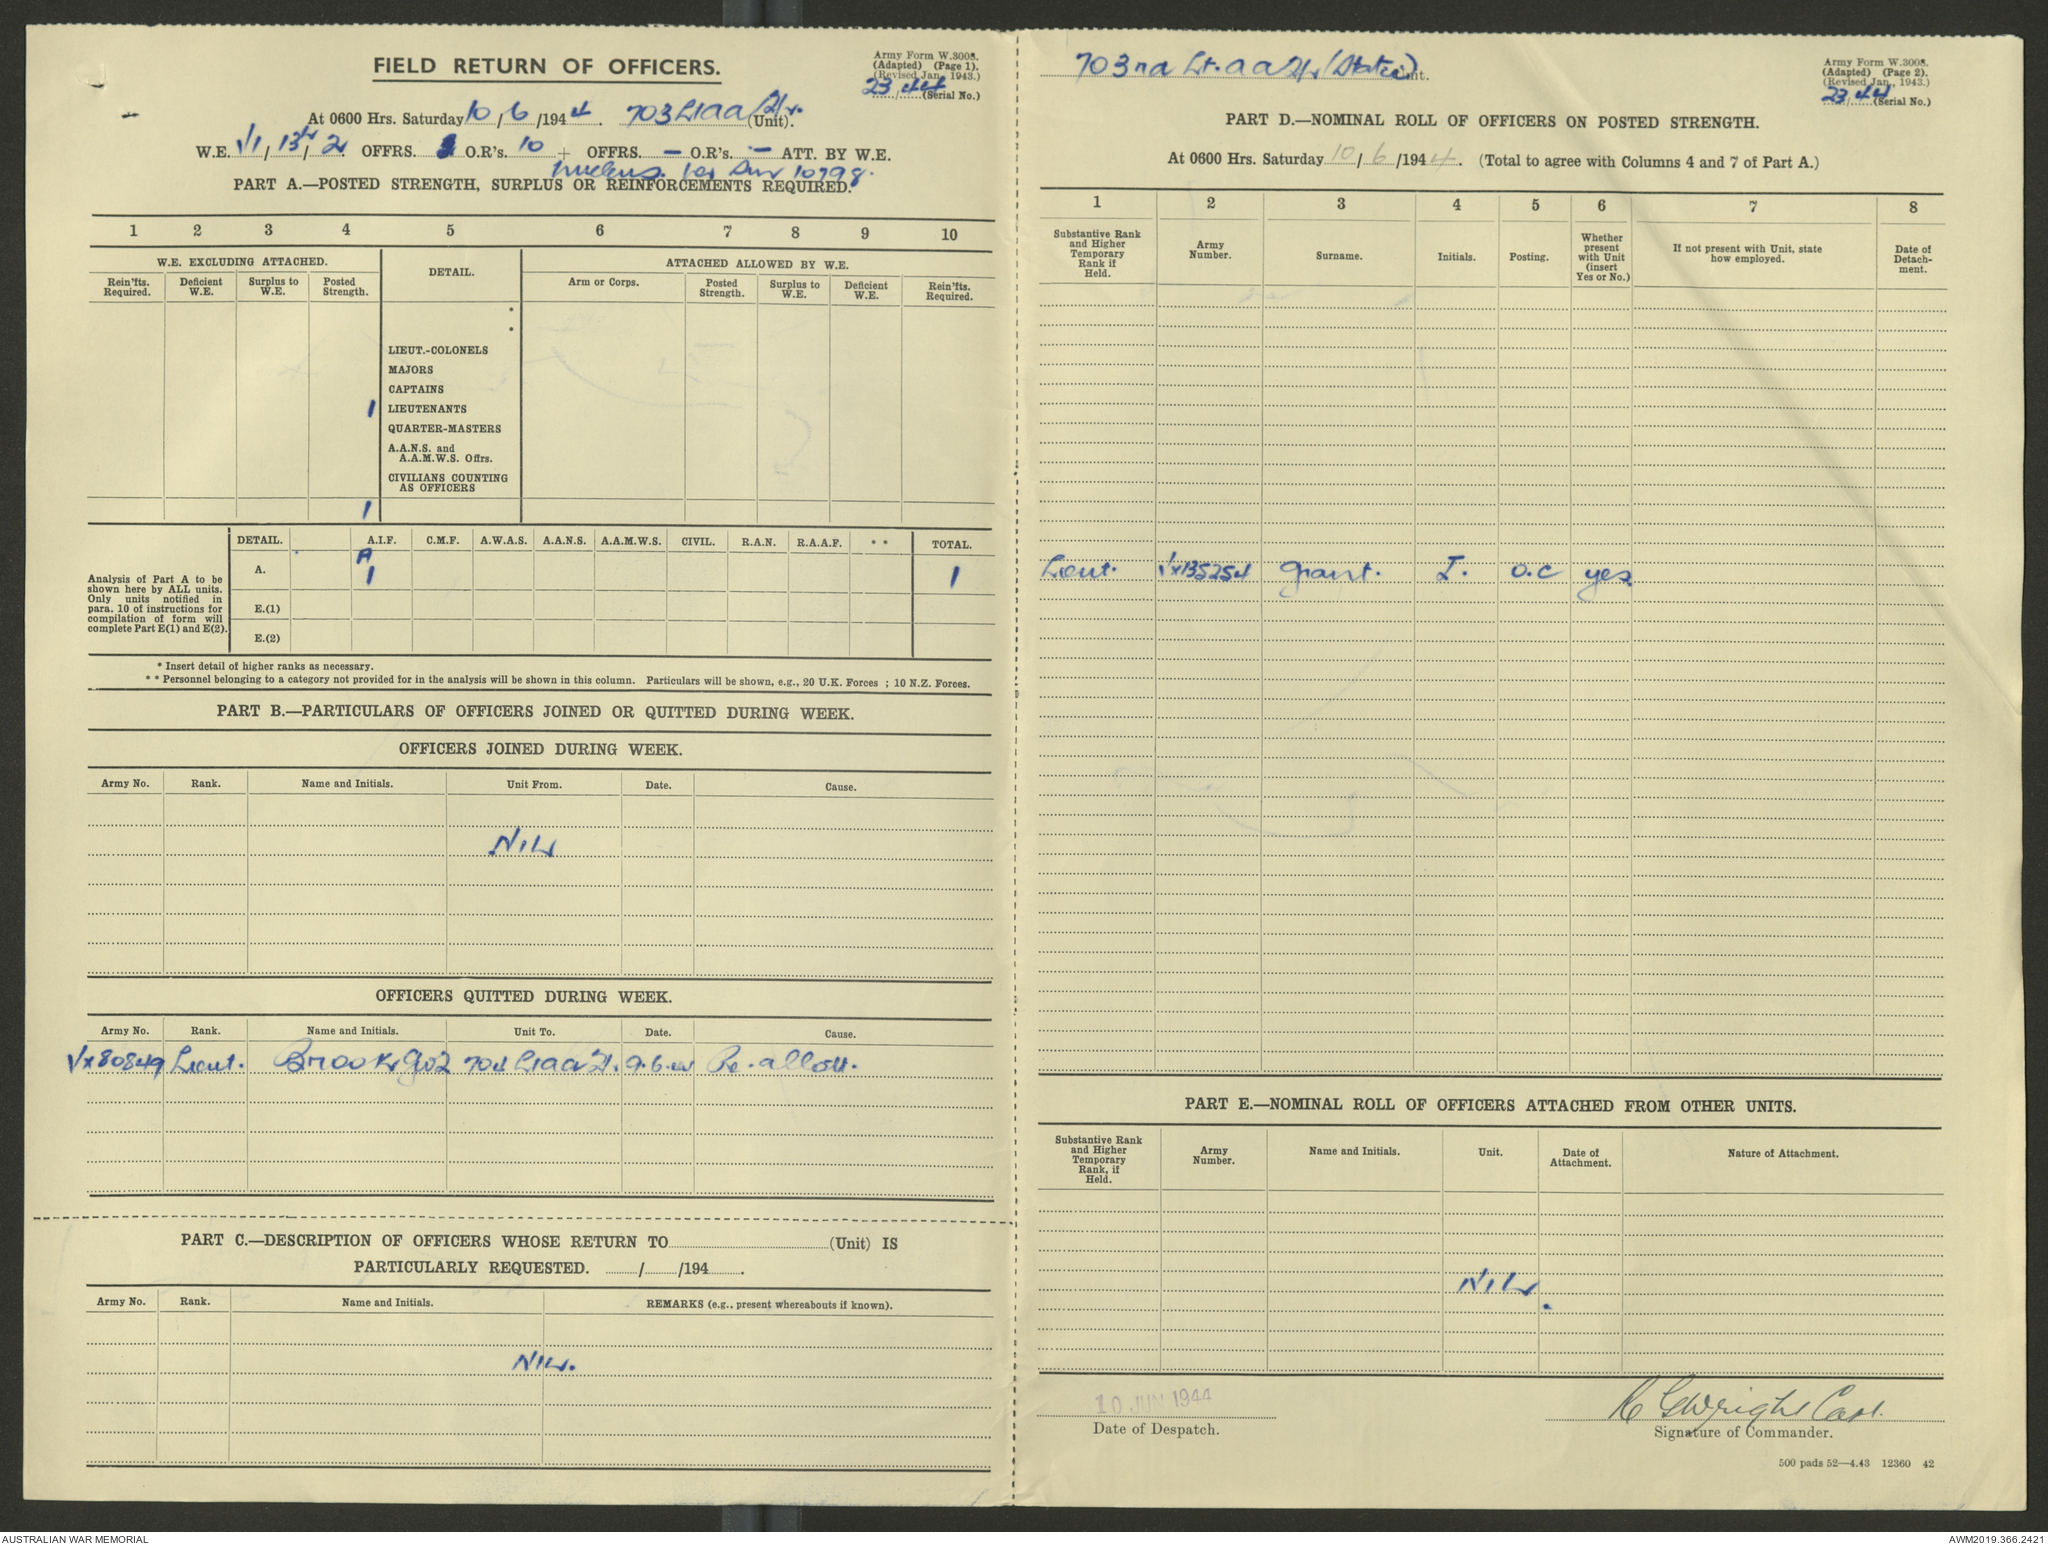 FIELD RETURN OF OFFICERS.
Army Form W.3008.
(Adapted) (Page 1).
(Revised Jan., 1943.)
23/44 (Serial No.)
At 0600 Hrs. Saturday 10/6/1944. 703 Lt AA (Unit).
W.E. VI/13/2 OFFRS. O.R's. 10 + OFFRS. — O.R's. — ATT. BY W.E.
nucleus 10798.
PART A.—POSTED STRENGTH, SURPLUS OR REINFORCEMENTS REQUIRED.
1 2 3 4 5 6 7 8 9 10
W.E. EXCLUDING ATTACHED. DETAIL. ATTACHED ALLOWED BY W.E.
Rein'fts. Required. Deficient W.E. Surplus to W.E. Posted Strength. Arm or Corps. Posted Strength. Surplus to W.E. Deficient W.E. Rein'fts. Required.
*
*
LIEUT.-COLONELS
MAJORS
CAPTAINS
1 LIEUTENANTS
QUARTER-MASTERS
A.A.N.S. and
A.A.M.W.S. Offrs.
CIVILIANS COUNTING
AS OFFICERS
1
Analysis of Part A to be
shown here by ALL units.
Only units notified in
para. 10 of instructions for
compilation of form will
complete Part E(1) and E(2).
DETAIL. A.I.F. C.M.F. A.W.A.S. A.A.N.S. A.A.M.W.S. CIVIL. R.A.N. R.A.A.F. * * TOTAL.
A
A. 1 1
E.(1)
E.(2)
* Insert detail of higher ranks as necessary.
* * Personnel belonging to a category not provided for in the analysis will be shown in this column. Particulars will be shown, e.g., 20 U.K. Forces ; 10 N.Z. Forces.
PART B.—PARTICULARS OF OFFICERS JOINED OR QUITTED DURING WEEK.
OFFICERS JOINED DURING WEEK.
Army No. Rank. Name and Initials. Unit From. Date. Cause.
NIL
OFFICERS QUITTED DURING WEEK.
Army No. Rank. Name and Initials. Unit To. Date. Cause.
VX80849 Lieut. 9.6.44 Re-allott.
PART C.—DESCRIPTION OF OFFICERS WHOSE RETURN TO (Unit) IS
PARTICULARLY REQUESTED. / /194 .
Army No. Rank. Name and Initials. REMARKS (e.g., present whereabouts if known).
NIL.
703 Lt. AA (Static) nt.
Army Form W.3008.
(Adapted) (Page 2).
(Revised Jan., 1943.)
23/44 (Serial No.)
PART D.—NOMINAL ROLL OF OFFICERS ON POSTED STRENGTH.
At 0600 Hrs. Saturday 10/6/1944. (Total to agree with Columns 4 and 7 of Part A.)
1 2 3 4 5 6 7 8
Substantive Rank and Higher Temporary Rank if Held. Army Number. Surname. Initials. Posting. Whether present with Unit (insert Yes or No.) If not present with Unit, state how employed. Date of Detach-ment.
Lieut. VX135254 Grant. I. O.C yes
PART E.—NOMINAL ROLL OF OFFICERS ATTACHED FROM OTHER UNITS.
Substantive Rank and Higher Temporary Rank, if Held. Army Number. Name and Initials. Unit. Date of Attachment. Nature of Attachment.
NIL.
10 JUN 1944
Date of Despatch.
Wright Capt.
Signature of Commander.
500 pads 52—4.43 12360 42
AUSTRALIAN WAR MEMORIAL
AWM2019.366.2421